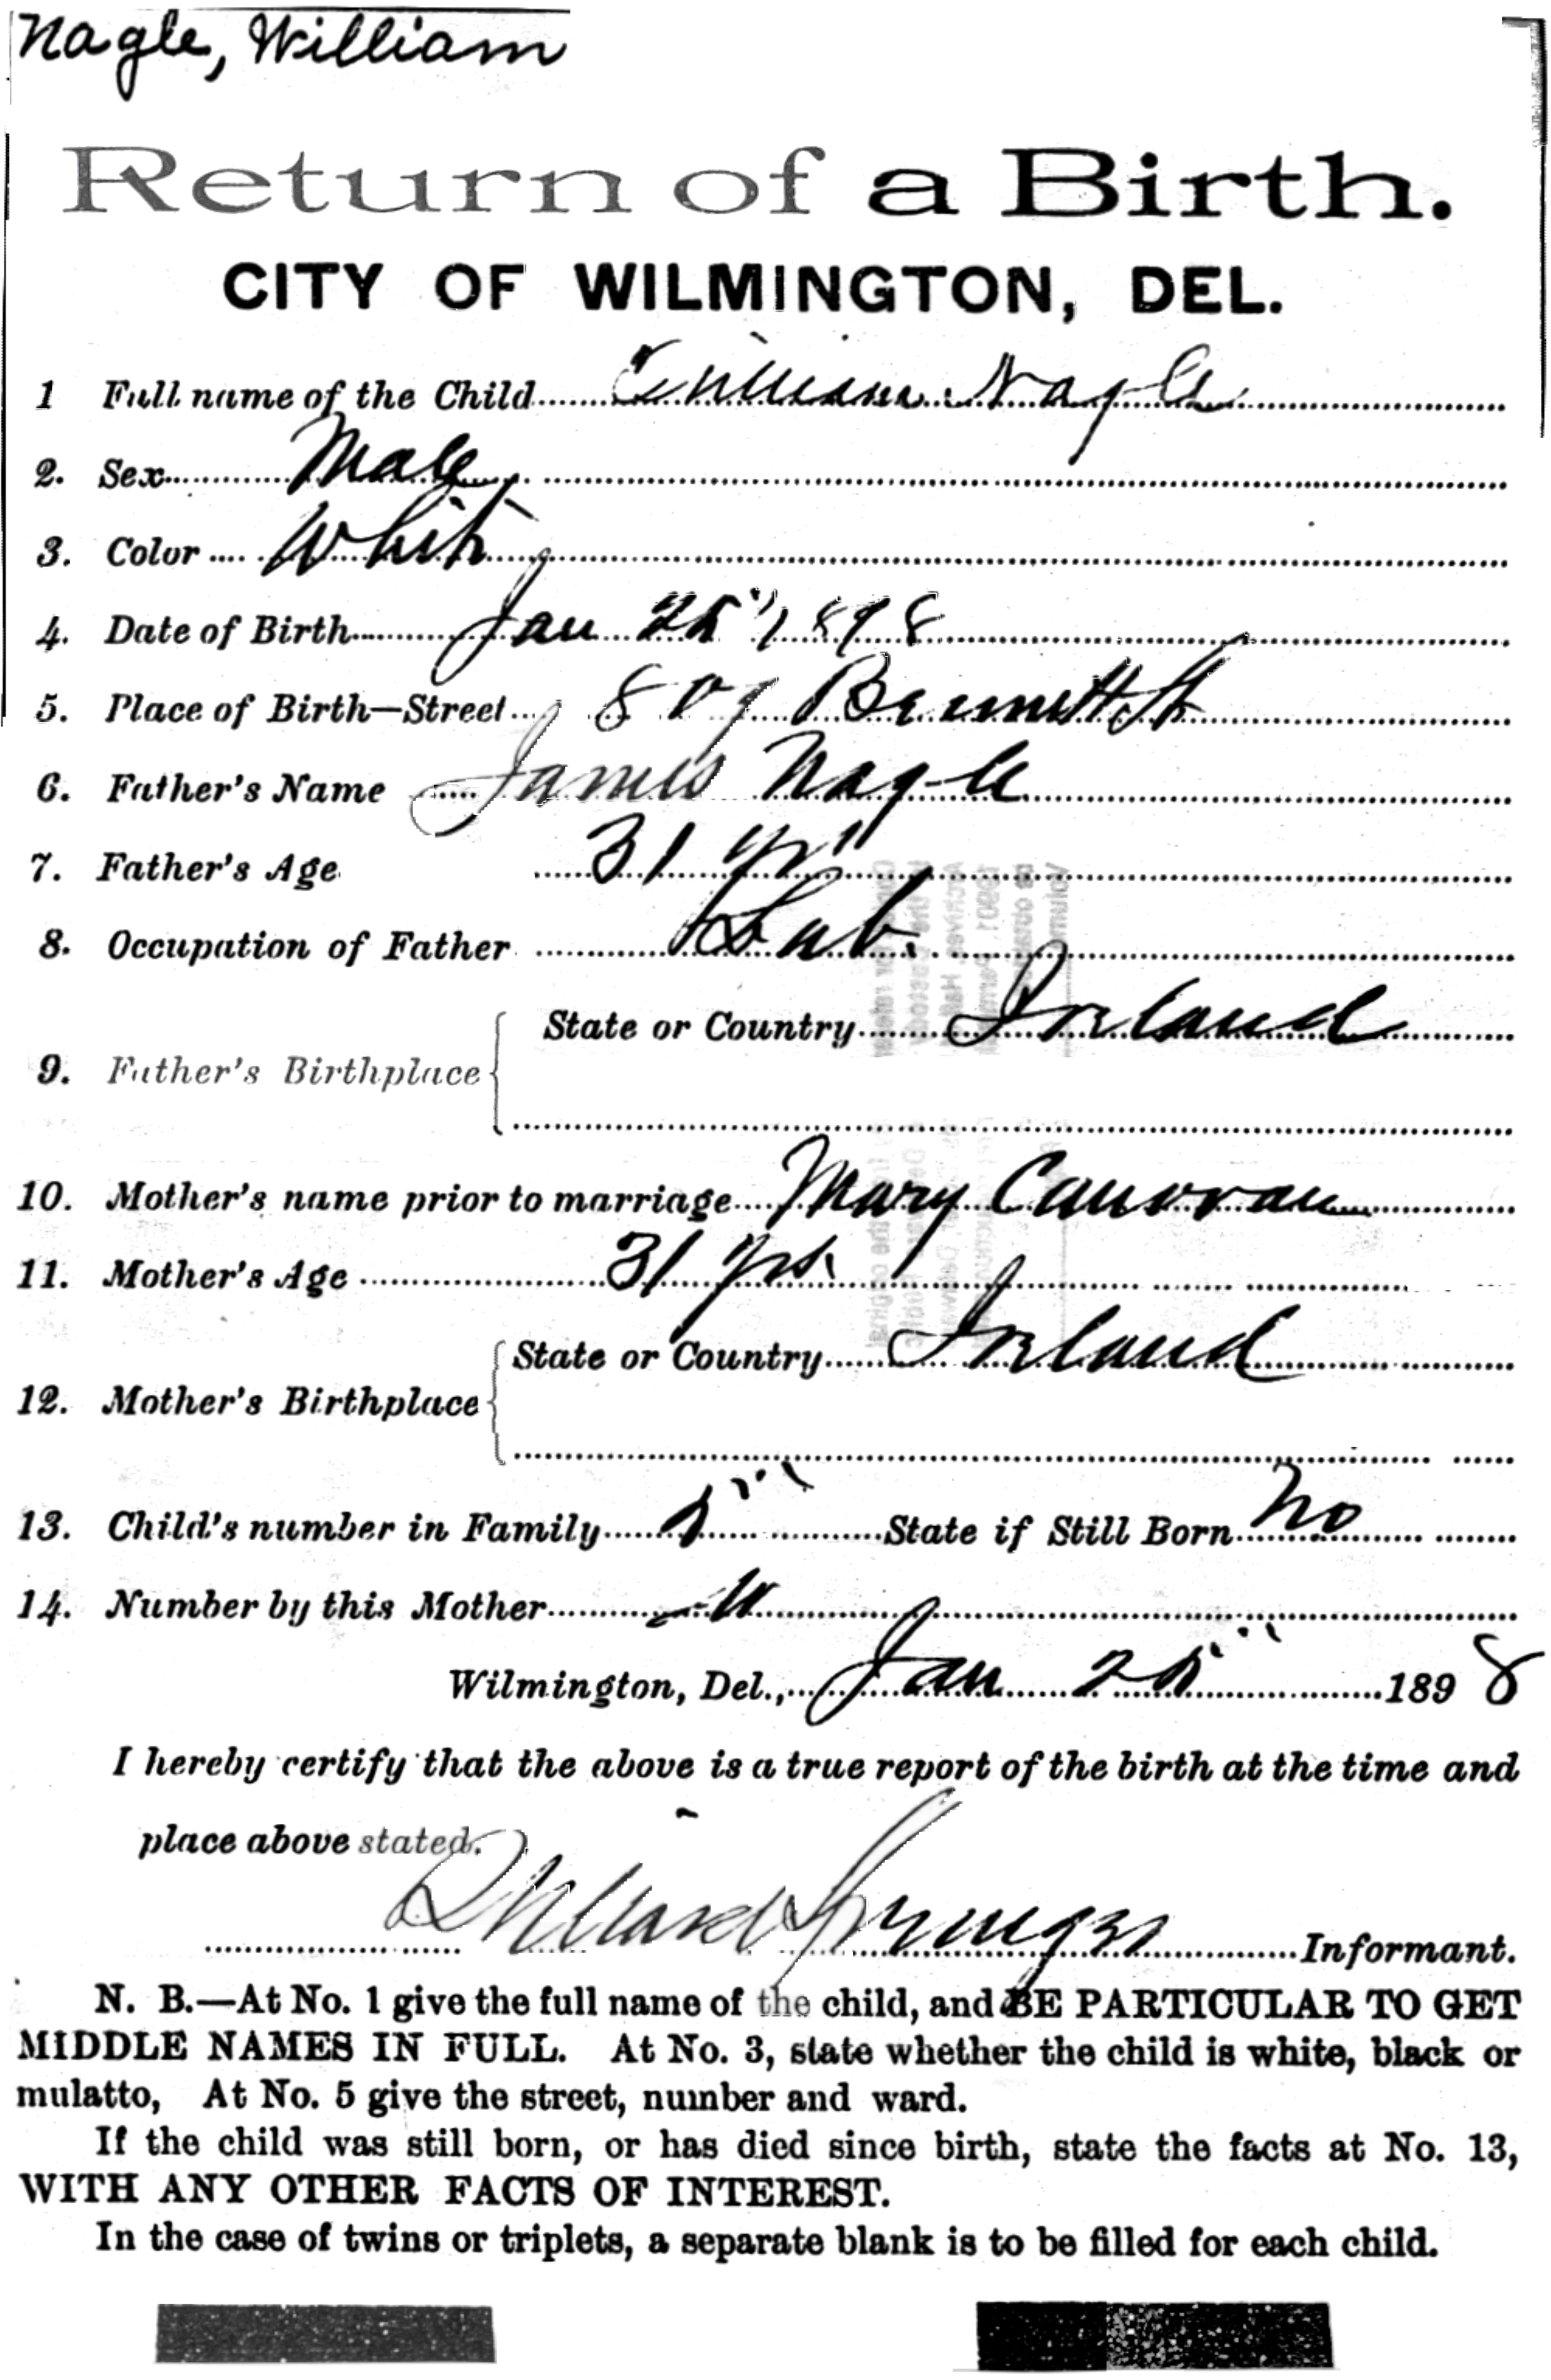 Nagle, William
Return of a Birth.
CITY OF WILMINGTON, DEL.
1 Full name of the Child William Nagle
2. Sex Male
3. Color White
4. Date of Birth Jan 25" 1898
5. Place of Birth—Street 809 Bennett St
6. Father's Name James Nagle
7. Father's Age 31 yrs
8. Occupation of Father Lab.
State or Country Ireland
9. Father's Birthplace
10. Mother's name prior to marriage Mary Canovan
11. Mother's Age 31 yrs
State or Country Ireland
12. Mother's Birthplace
13. Child's number in Family 5" State if Still Born No
14. Number by this Mother "
Wilmington, Del., Jan 25" 1898
I hereby certify that the above is a true report of the birth at the time and
place above stated.
Willard Springer Informant.
N. B.—At No. 1 give the full name of the child, and BE PARTICULAR TO GET
MIDDLE NAMES IN FULL. At No. 3, state whether the child is white, black or
mulatto, At No. 5 give the street, number and ward.
If the child was still born, or has died since birth, state the facts at No. 13,
WITH ANY OTHER FACTS OF INTEREST.
In the case of twins or triplets, a separate blank is to be filled for each child.